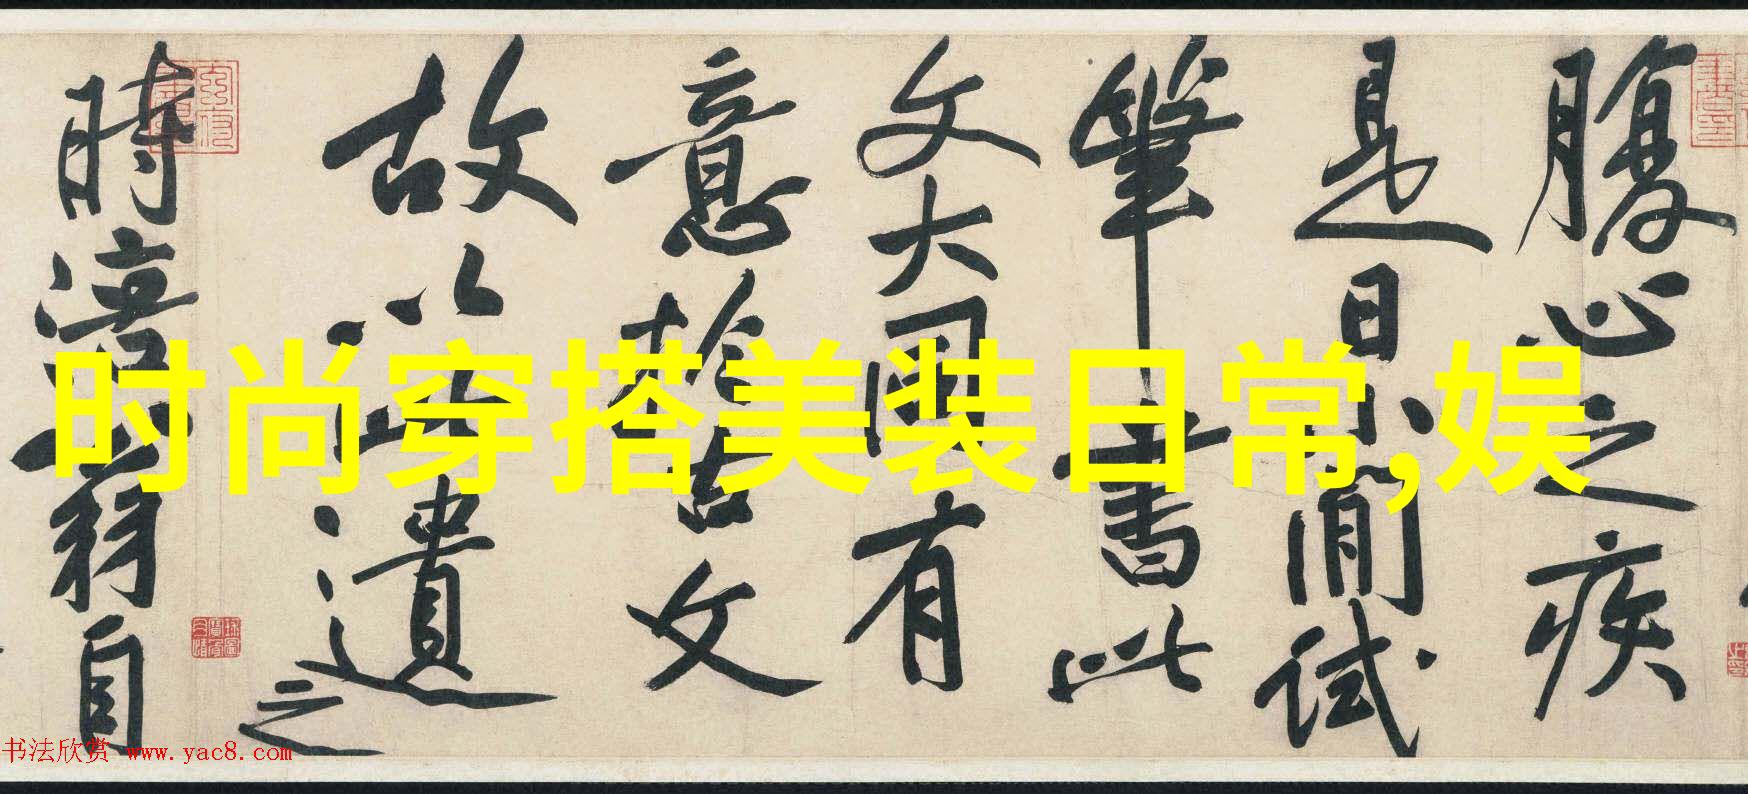 腹心之疾
是日小閒試
筆書此
文大國有
意於古文
故以此遺之
時涪翁自
时尚穿搭美装日常,娱
书法欣赏 www.yac8.com